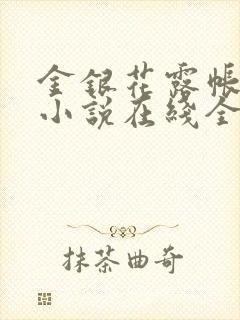 金银花露帐
小说在线全
抹茶曲奇